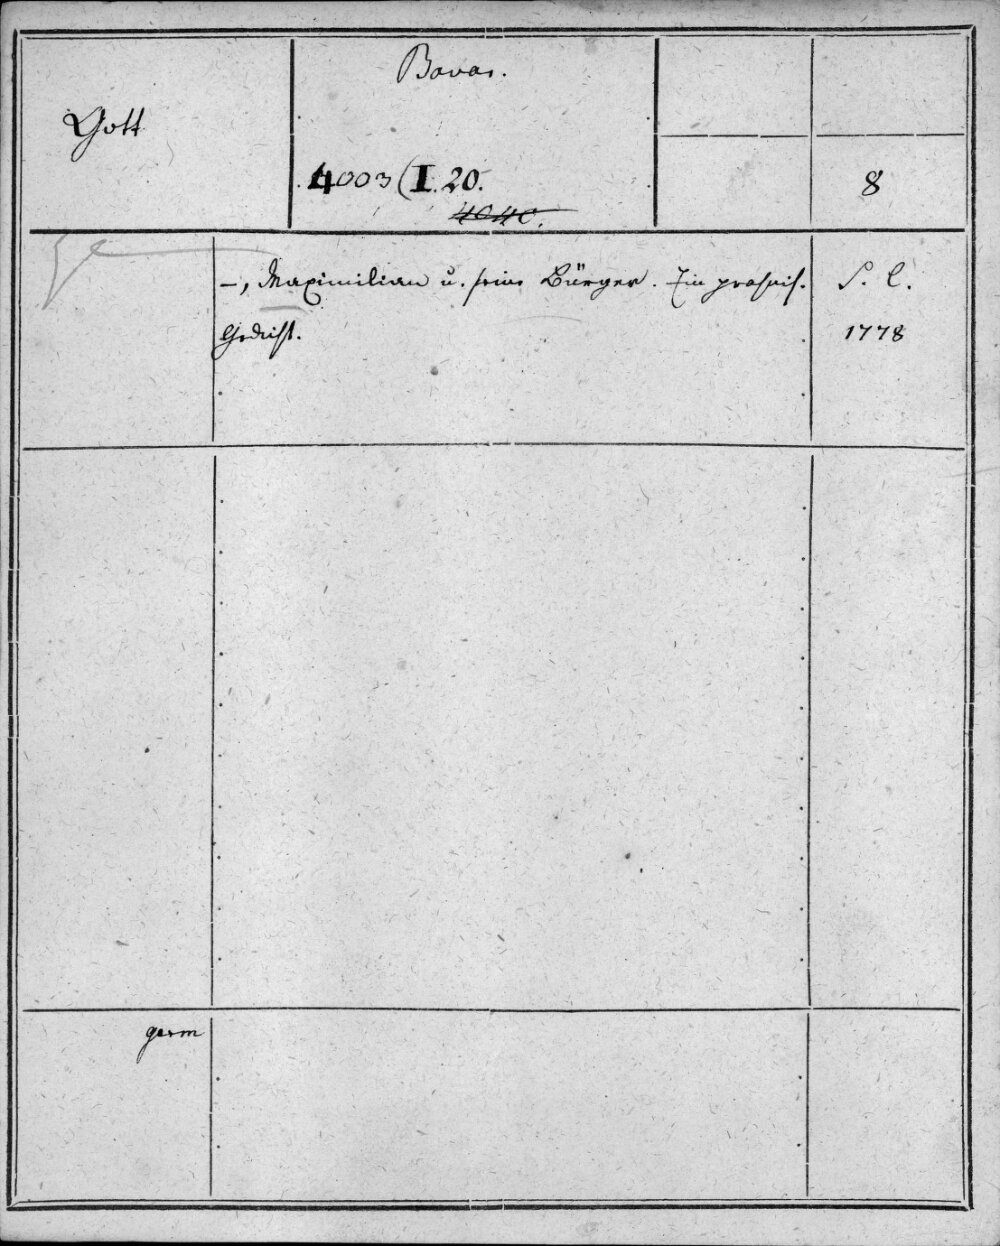 Bavar.
Gott
4003 (I. 20.
4040.
8
–, Maximilian u. seine Bürger. Ein prosais.
Gedicht.
S. l.
1778
germ